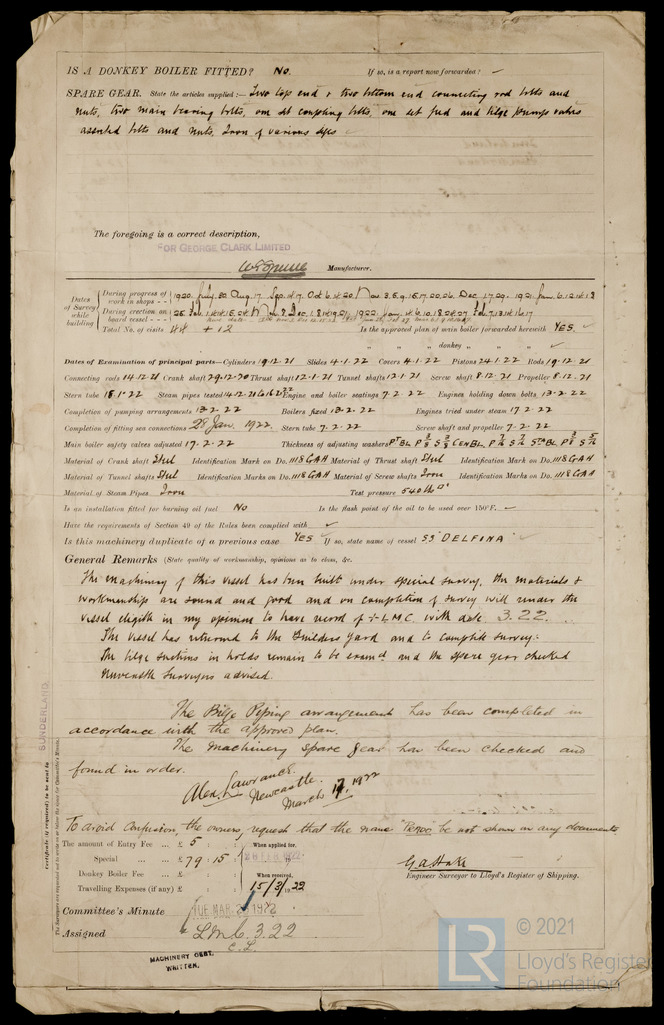 IS A DONKEY BOILER FITTED? No. If so, is a report now forwarded? ✓
SPARE GEAR. State the articles supplied:— Two top end & two bottom end connecting rod bolts and
nuts, two main bearing bolts, one set coupling bolts, one set feed and bilge pumps valves
assorted bolts and nuts, Iron of various sizes
The foregoing is a correct description,
FOR GEORGE CLARK LIMITED
Manufacturer.
Dates of Survey while building
During progress of work in shops - - 1920. July. 30 Aug. 17. Sep. 14. 17. Oct. 6. 14. 20. Nov. 3. 5. 9. 15. 17. 20. 26. Dec. 17. 29. 1921. Jan. 6. 12. 14. 18
During erection on board vessel - - -
Total No. of visits 44 + 12 Is the approved plan of main boiler forwarded herewith YES. ✓
" " " donkey " " " ✓
Dates of Examination of principal parts—Cylinders 19.12.21 Slides 4.1.22 Covers 4.1.22 Pistons 24.1.22 Rods 19.12.21
Connecting rods 14.12.21 Crank shaft 29.12.20 Thrust shaft 12.1.21 Tunnel shafts 12.1.21 Screw shaft 8.12.21 Propeller 8.12.21
Stern tube 18.1.22 Steam pipes tested Engine and boiler seatings 7.2.22 Engines holding down bolts 13.2.22
Completion of pumping arrangements 13.2.22 Boilers fixed 13.2.22 Engines tried under steam 17.2.22
Completion of fitting sea connections 28 Jan. 1922. Stern tube 7.2.22 Screw shaft and propeller 7.2.22
Main boiler safety valves adjusted 17.2.22 Thickness of adjusting washers
Material of Crank shaft Steel Identification Mark on Do. 1118 GAH Material of Thrust shaft Steel Identification Mark on Do. 1118 GAH
Material of Tunnel shafts Steel Identification Marks on Do. 1118 GAH Material of Screw shafts Iron Identification Marks on Do. 1118 GAH
Material of Steam Pipes Iron Test pressure 540 lb □"
Is an installation fitted for burning oil fuel No Is the flash point of the oil to be used over 150°F. ✓
Have the requirements of Section 49 of the Rules been complied with ✓
Is this machinery duplicate of a previous case YES ✓ If so, state name of vessel SS "DELFINA" ✓
General Remarks (State quality of workmanship, opinions as to class, &c.
The machinery of this vessel has been built under special survey, the materials &
workmanship are sound and good and on completion of survey will render the
vessel eligible in my opinion to have record of + LMC with date 3.22.
The vessel has returned to the Builders Yard and to complete survey:
The bilge suctions in holds remain to be exam'd and the spare gear checked
Newcastle Surveyors advised.
The Bilge Piping arrangement has been completed in
accordance with the approved plan.
The machinery spare gear has been checked and
found in order.
Alex. Lawrance.
Newcastle.
March 17, 1922
SUNDERLAND
Certificate (if required) to be sent to
To avoid confusion, the owners, request that the name be not shown on any documents
The amount of Entry Fee ... £ 5 : : When applied for.
Special ... ... £ 79 : 15 :
Donkey Boiler Fee ... £ : : When received,
Travelling Expenses (if any) £ : : 15/3/1922
G. A. Hake
Engineer Surveyor to Lloyd's Register of Shipping.
Committee's Minute TUE. MAR. 1922
Assigned + L.M.C. 3.22
C.L.
MACHINERY CERT.
WRITTEN.
LR © 2021
Lloyd's Register
Foundation